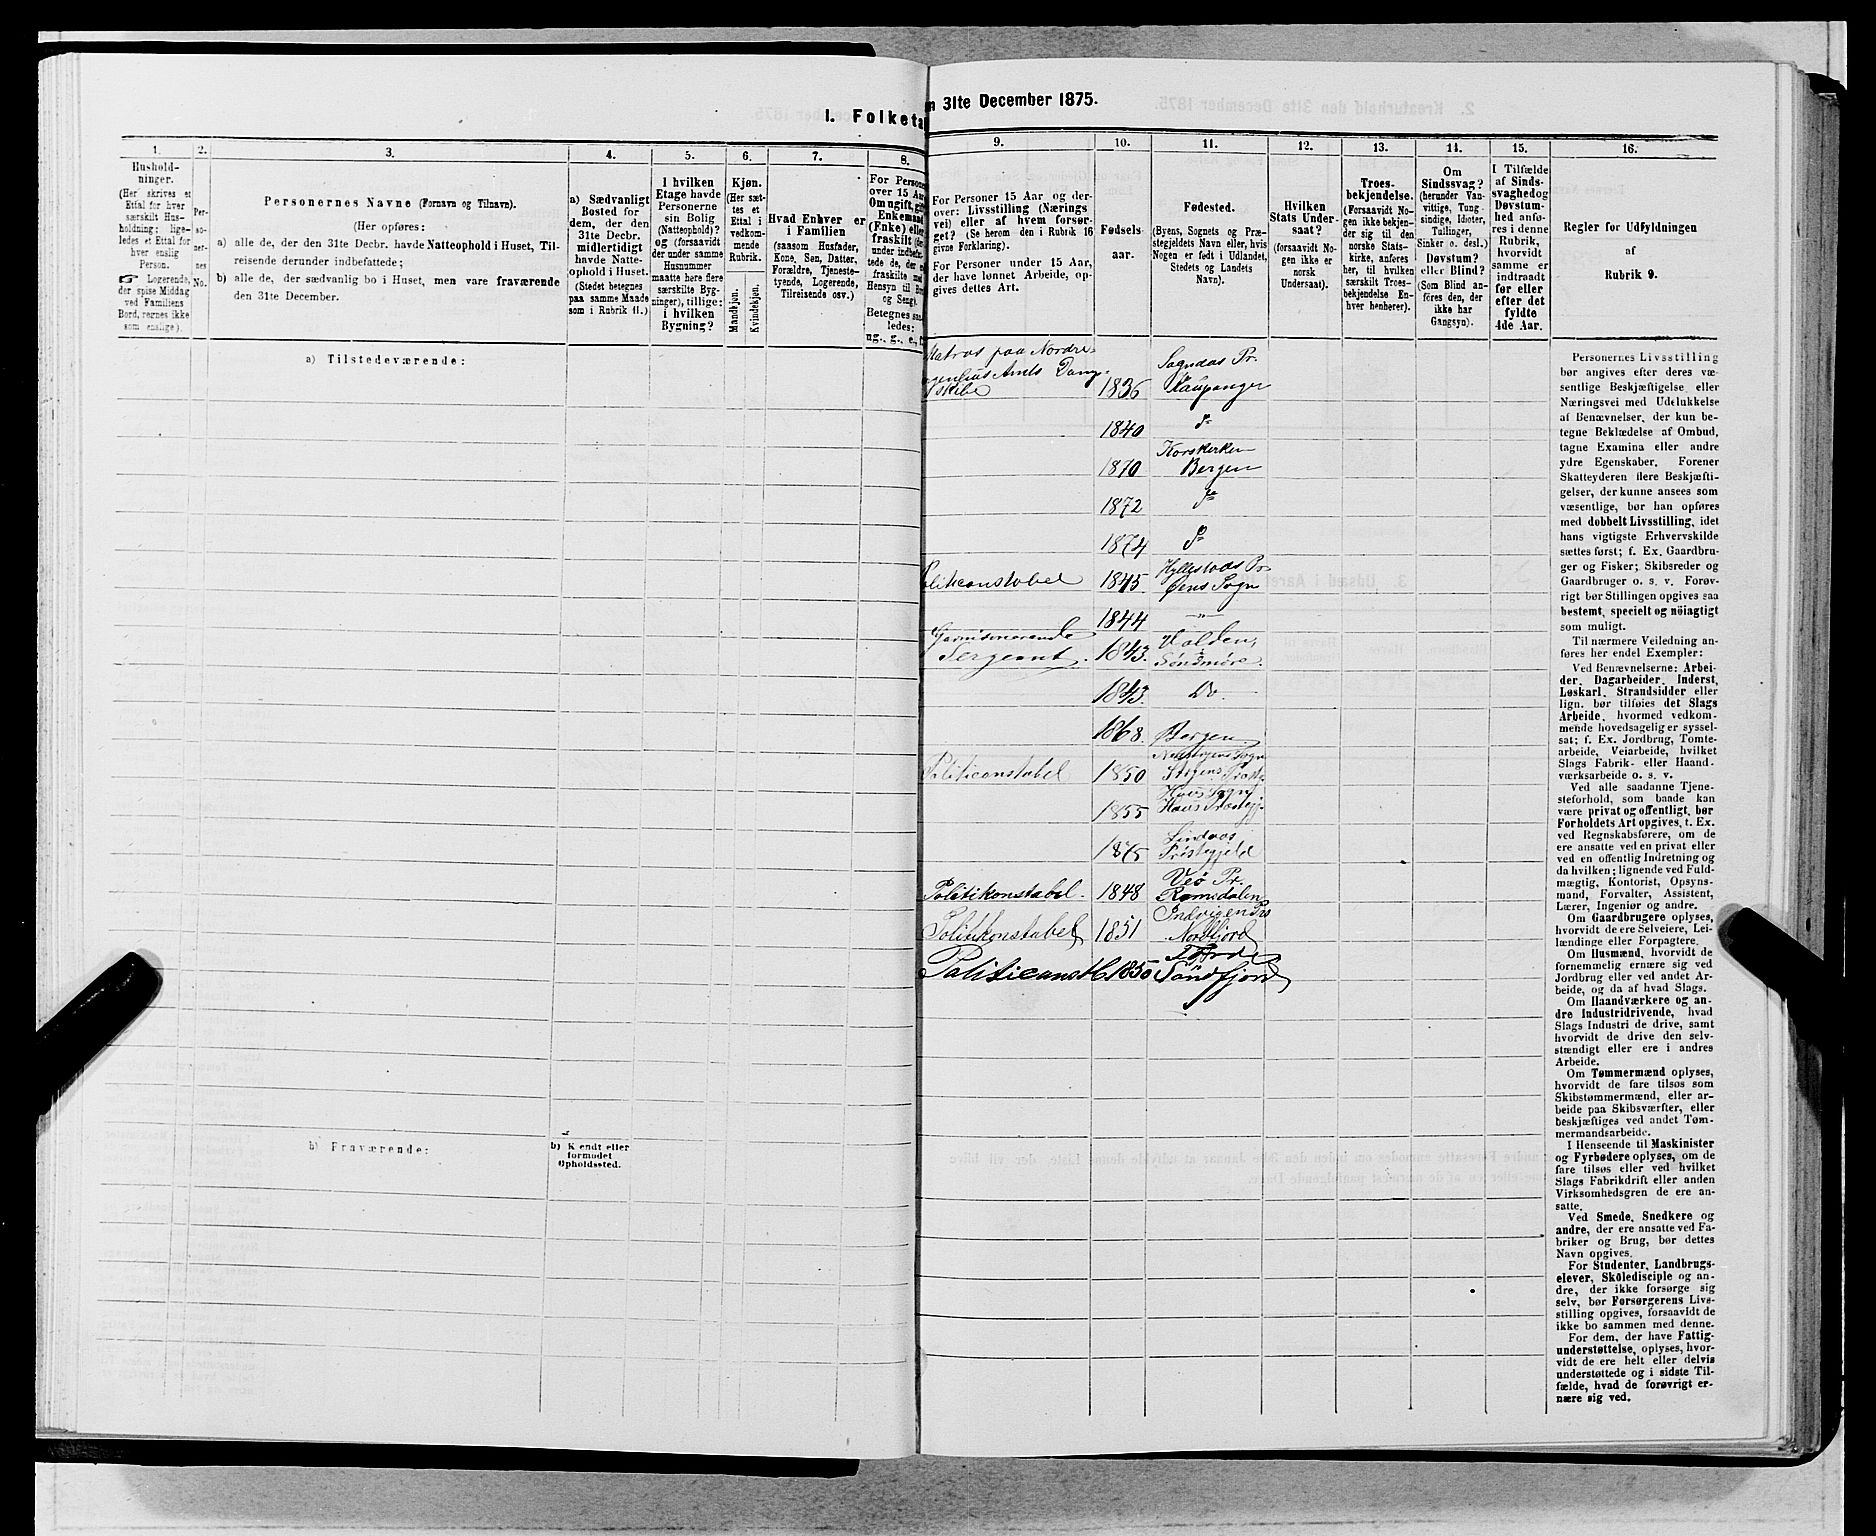 I. Folketa
m 31te December 1875.
1.
Hushold-
ninger.
(Her skrives et
Ettal for hver
særskilt Hus-
holdning; lige-
ledes et Ettal for
hver enslig
Person.
☞ Logerende,
der spise Middag
ved Familiens
Bord, regnes ikke
som enslige).
2.
Per-
so-
ner-
nes
No.
3.
Personernes Navne (Fornavn og Tilnavn).
(Her opføres:
a) alle de, der den 31te Decbr. havde Natteophold i Huset, Til-
reisende derunder indbefattede;
b) alle de, der sædvanlig bo i Huset, men vare fraværende
den 31te December.
4.
a) Sædvanligt
Bosted for
dem, der den
31te Decbr.
midlertidigt
havde Natte-
ophold i Huset.
(Stedet betegnes
paa samme Maade
som i Rubrik 11.)
5.
I hvilken
Etage havde
Personerne
sin Bolig
(Natteophold)?
og (forsaavidt
der under samme
Husnummer
maatte høre flere
særskilte Byg-
ninger), tillige:
i hvilken
Bygning?
6.
Kjøn.
(Her sæt-
tes et
Ettal i
vedkom-
mende
Rubrik.
Mandkjøn.
Kvindekjøn.
7.
Hvad Enhver er
i Familien
(saasom Husfader,
Kone, Søn, Datter,
Forældre, Tjeneste-
tyende, Logerende,
Tilreisende osv.)
8.
For Persone
over 15 Aar
Om ugift, gift
Enkemand
(Fnke) eller
fraskilt (der
under indbefat-
tede de, der e
fraskilte med
Hensyn til Bo
og Seng).
Betegnes saa
ledes:
ug., g., e., f.
9.
For Personer 15 Aar og der-
over: Livsstilling (Nærings
vei) eller af hvem forsør-
get? (Se herom den i Rubrik 16
givne Forklaring).
For Personer under 15 Aar,
der have lønnet Arbeide, op-
gives dettes Art.
10.
Fødsels
aar.
11.
Fødested.
(Byens, Sognets og Præ-
stegjeldets Navn eller, hvis
Nogen er født i Udlandet,
Stedets og Landets
Navn).
12.
Hvilken
Stats Under-
saat?
(forsaavidt No-
gen ikke er
norsk
Undersaat).
13.
Troes-
bekjendelse.
(Forsaavidt No-
gen ikke bekjen-
der sig til den
norske Stats-
kirke, anføres
her, til hvilken
særskilt Troes-
bekjendelse En-
hver henhører).
14.
Om
Sindssvag?
(herunder Van-
vittige, Tung-
sindige, Idioter,
Tullinger,
Sinker o. desl.)
Døvstum?
eller Blind?
(Som Blind an-
føres den, der
ikke har
Gangsyn).
15.
I Tilfælde
af Sinds-
svaghed og
Døvstum-
hed anfø-
res i denne
Rubrik,
hvorvidt
samme er
indtraadt
før eller
efter det
fyldte
4de Aar.
16.
Regler for Udfyldningen
af
Rubrik 9.
a) Tilstedeværende:
Matros paa Nordre
Amts Damp-
skibe
1836
Sogndal Pr.
Kaupanger
1840
do
1870
Korskirken
Bergen
1872
do
1874
do
Politiconstabel
1845
Hyllestads Pr
Øens Sogn
1844
—"—
Garnisonerende
Sergeant.
1843.
Søndmøre.
1843.
Do
1868.
Bergen
Politiconstabel
1850
1855
Haus Sogn
Haus Præstegj.
1875
Lindaas
Præstegjeld
Politikonstabel.
1848
Veø Pr.
Romsdalen
Politikonstabel
1851
Indvigen Prs
Nordfjord
Politiconstb
1850
Førde
Søndfjord
b) Fraværende:
b) Kjendt eller
formodet
Opholdssted.
Personernes Livsstilling
bør angives efter deres væ-
sentlige Beskjæftigelse eller
Næringsvei med Udelukkelse
af Benævnelser, der kun be-
tegne Beklædelse af Ombud,
tagne Examina eller andre
ydre Egenskaber. Forener
Skatteyderen flere Beskjæfti-
gelser, der kunne ansees som
væsentlige, bør han opføres
med dobbelt Livsstilling, idet
hans vigtigste Erhvervskilde
sættes først; f. Ex. Gaardbru-
ger og Fisker; Skibsreder og
Gaardbruger o. s. v. Forøv-
rigt bør Stillingen opgives saa
bestemt, specielt og nöiagtigt
som muligt.
Til nærmere Veiledning an-
føres her endel Exempler:
Ved Benævnelserne: Arbei-
der, Dagarbeider, Inderst,
Løskarl, Strandsidder eller
lign. bør tilføies det Slags
Arbeide, hvormed vedkom-
mende hovedsagelig er syssel-
sat; f. Ex. Jordbrug, Tomte-
arbeide, Veiarbeide, hvilket
Slags Fabrik- eller Haand-
værksarbeide o. s. v.
Ved alle saadanne Tjene-
steforhold, som baade kan
være privat og offentligt, bør
Forholdets Art opgives, t. Ex.
ved Regnskabsførere, om de
ere ansatte ved en privat eller
ved en offentlig Indretning og
da hvilken; lignende ved Fuld-
mægtig, Kontorist, Opsyns-
mand, Forvalter, Assistent,
Lærer, Ingeniør og andre.
Om Gaardbrugere oplyses,
hvorvidt de ere Selveiere, Lei-
lændinge eller Forpagtere.
Om Husmænd, hvorvidt de
fornemmelig ernære sig ved
Jordbrug eller ved andet Ar-
beide, og da af hvad Slags.
Om Haandværkere og an-
dre Industridrivende, hvad
Slags Industri de drive, samt
hvorvidt de drive den selv-
stændigt eller ere i andres
Arbeide.
Om Tømmermænd oplyses,
hvorvidt de fare tilsøs som
Skibstømmermænd, eller ar-
beide paa Skibsværfter, eller
beskjæftiges ved andet Tøm-
mermandsarbeide.
I Henseende til Maskinister
og Fyrbødere oplyses, om de
fare tilsøs eller ved hvilket
Slags Fabrikdrift eller anden
Virksomhedsgren de ere an-
satte.
Ved Smede, Snedkere og
andre, der ere ansatte ved Fa-
briker og Brug, bør dettes
Navn opgives.
For Studenter, Landbrugs-
elever, Skoledisciple og an-
dre, der ikke forsørge sig
selv, bør Forsørgerens Livs-
stilling opgives, forsaavidt de
ikke bo sammen med denne.
For dem, der have Fattig-
understøttelse, oplyses, hvor-
vidt de ere helt eller delvis
understøttede og i sidste Til-
fælde, hvad de forøvrigt er-
nære sig ved.